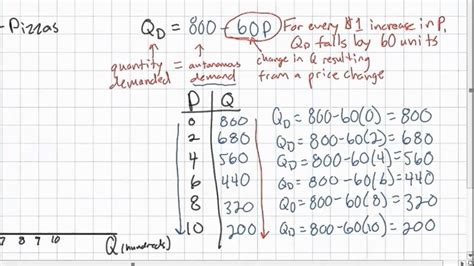 - Pizzas
Q_D = 800 - 60P
For every $1 increase in P,
Q_D falls by 60 units
quantity demanded = autonomous demand
change in Q resulting
from a price change
P Q
0 800
2 680
4 560
6 440
8 320
10 200
Q_D = 800-60(0) = 800
Q_D = 800-60(2) = 680
Q_D = 800-60(4) = 560
Q_D = 800-60(6) = 440
Q_D = 800-60(8) = 320
Q_D = 800-60(10) = 200
7 8 9 10
Q (hundreds)